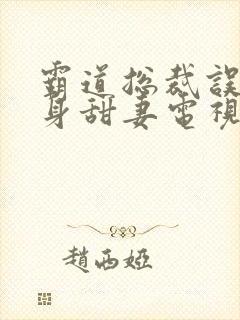 霸道総裁誤
身甜妻電視
趙西婭